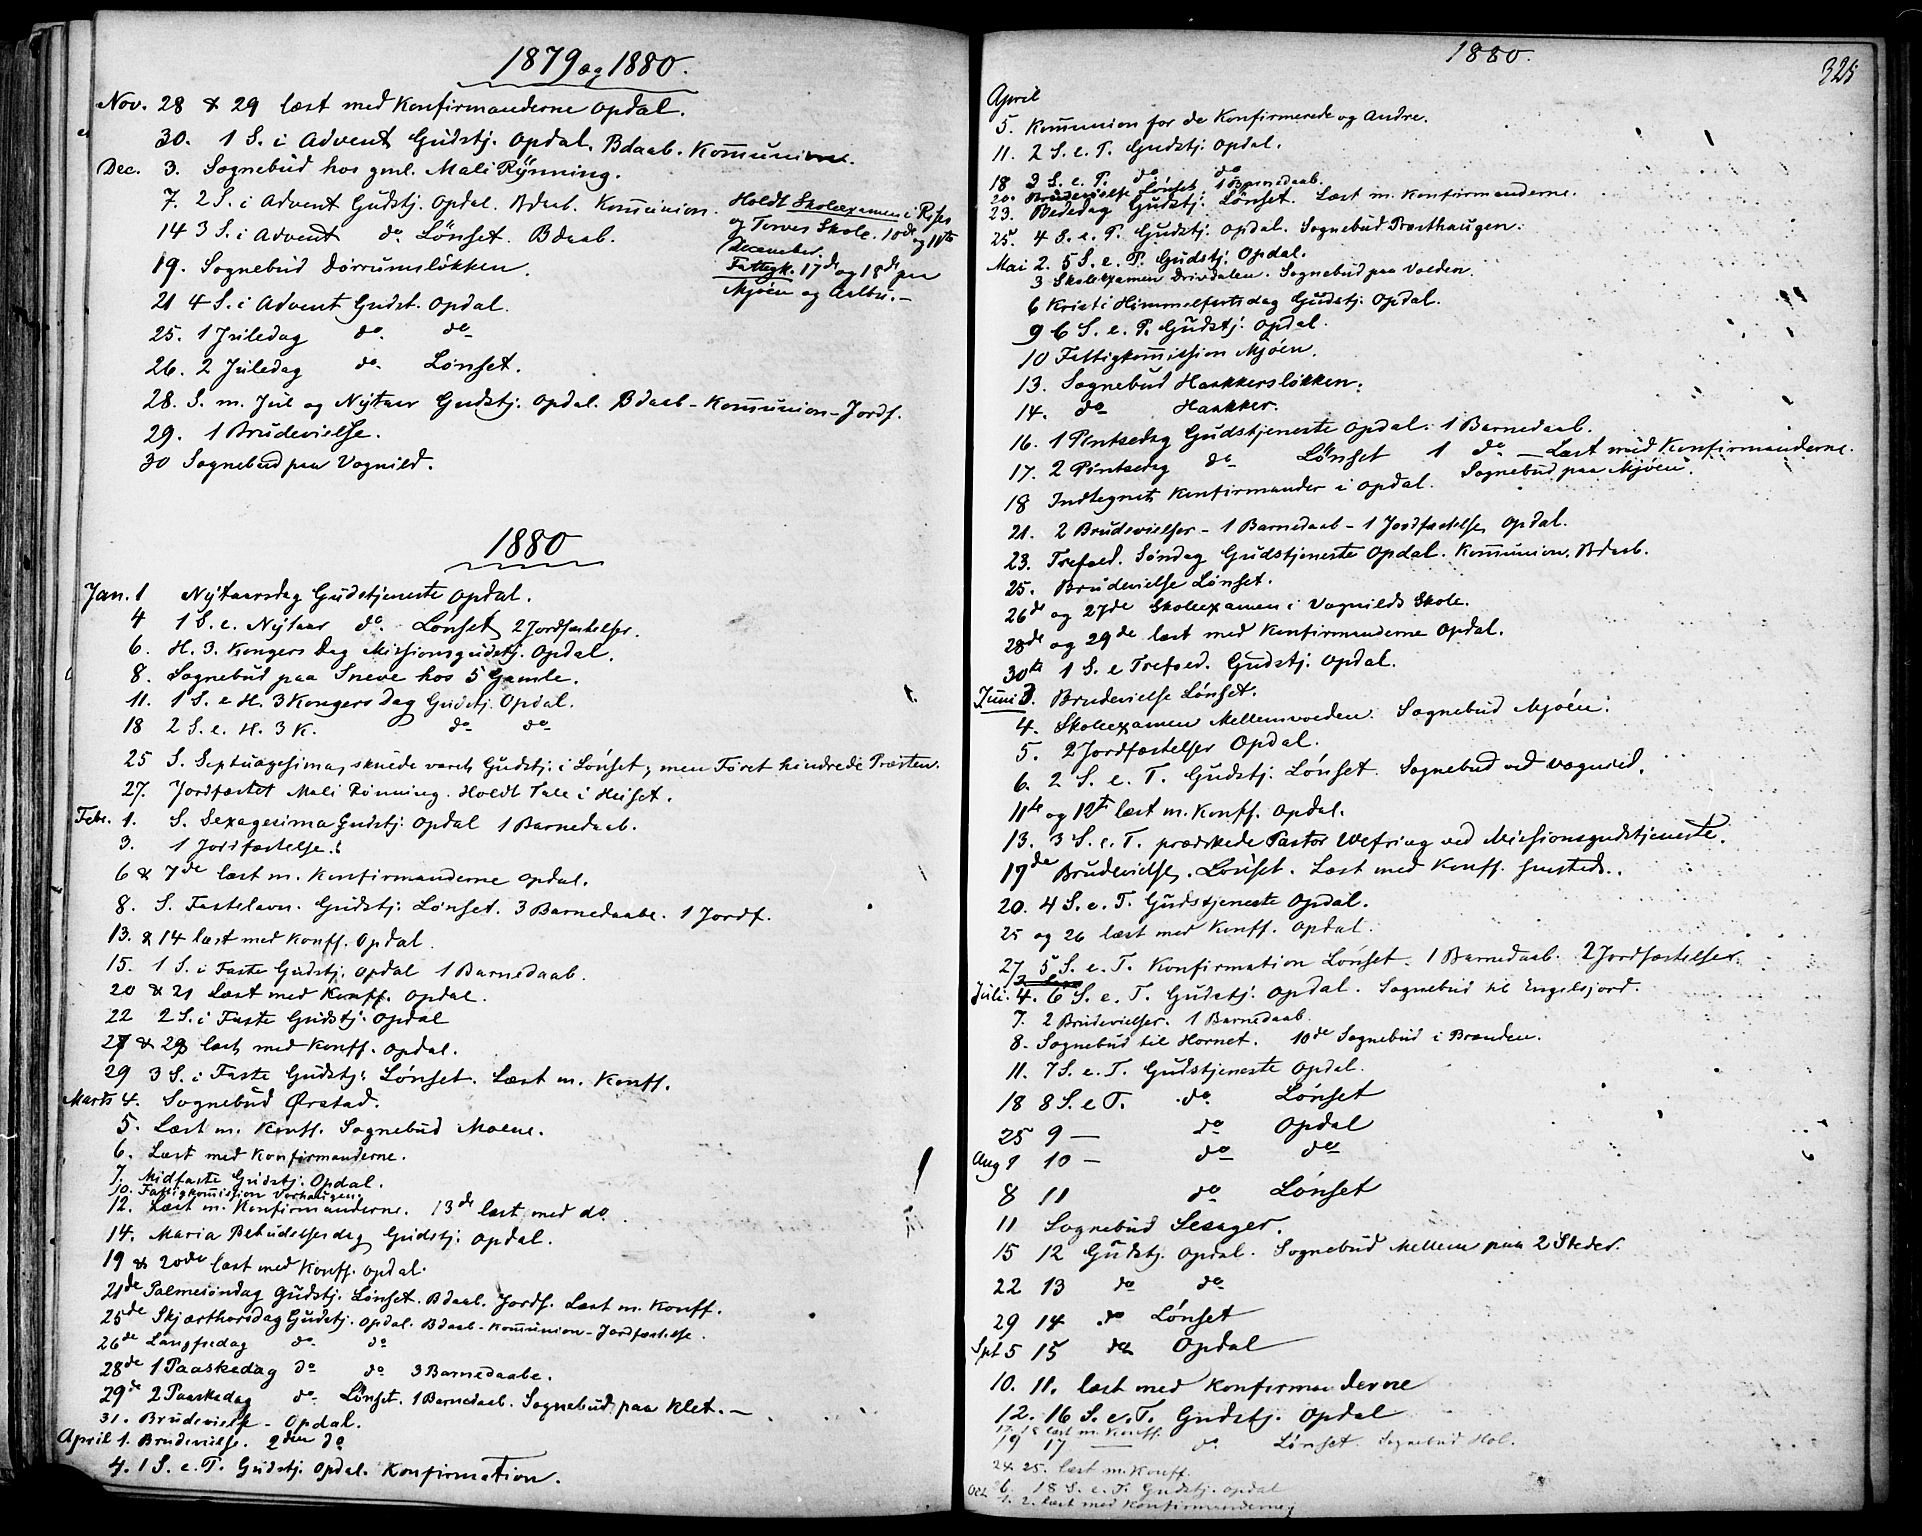 1879 og 1880.
Nov. 28 & 29 læst med Konfirmanderne Opdal.
30. 1 S. i Advent Gudstj. Opdal. Bdaab. Kommunion.
Dec. 3. Sognebud hos gml. Mali Rynning.
7. 2 S. i Advent Gudstj. Opdal. Bdaab. Kommunion.
14 3 S. i Advent do Lönset. Bdaab.
19. Sognebud Dörrumsløkken.
21 4 S. i Advent Gudst. Opdal.
25. 1 Juledag do do
26. 2 Juledag do Lønset.
28. S. m. Jul og Nytaar Gudstj. Opdal. Bdaab - Kommunion - Jordf.
29. 1 Brudevielse.
30 Sognebud paa Vognild.
Holdt Skoleexamen i Rises
og Torves Skole. 10de og 11te
December.
Fattigk. 17de og 18de paa
Mjøen og Aalbu. -
1880
Jan. 1 Nytaarsdag Gudstjeneste Opdal.
4 1 S. e. Nytaar do Lønset 2 Jordfæstelser.
6. H. 3. Kongers Dag Missionsgudstj. Opdal.
8. Sognebud paa Sneve hos 5 Gamle.
11. 1 S. e H. 3 Kongers Dag Gudstj. Opdal.
18 2 S. e. H. 3 K. do do
25 S. Septuagesima, skulde været Gudstj. i Lønset, men Føret hindrede Præsten.
27. Jordfæstet Mali Rönning. Holdt Tale i Huset.
Febr. 1. S. Sexagesima Gudstj. Opdal 1 Barnedaab.
3. 1 Jordfæstelse.
6 & 7de læst m. Konfirmanderne Opdal.
8. S. Fastelavn. Gudstj. Lønset. 3 Barnedaabe. 1 Jordf.
13. & 14 læst med Konff. Opdal.
15. 1 S. i Faste Gudstj. Opdal 1 Barnedaab.
20 & 21 Læst med Konff. Opdal.
22 2 S. i Faste Gudstj. Opdal
27 & 28 læst med Konff. Opdal.
29 3 S. i Faste Gudstj. Lønset. Læst m. Konff.
Marts 4. Sognebud Ørstad.
5. Læst m. Konff. Sognebud Moene.
6. Læst med Konfirmanderne.
7. Midfaste Gudstj. Opdal.
10. Fattigkommission Vorhaugen.
12. Læst m. Konfirmanderne. 13de læst med do.
14. Maria Bebudelsesdag Gudstj. Opdal.
19 & 20de læst med Konff. Opdal.
21de Palmesøndag Gudstj. Lønset. Bdaab. Jordf. Læst m. Konff.
25de Skjærthorsdag Gudstj. Opdal. Bdaab - Kommunion - Jordfæstelse.
26de Langfredag do do
28de 1 Paaskedag do do 3 Barnedaabe.
29de 2 Paaskedag do Lønset. 1 Barnedaab. Sognebud paa Klet. -
31. Brudevielse - Opdal.
April 1. Brudevielse. 2den do
4. 1 S. e. P. Gudstj. Opdal. Konfirmation.
1880.
325
April
5. Kommunion for de Konfirmerede og Andre.
11. 2 S. e. P. Gudstj. Opdal.
18 3 S. e. P. do do
20. Brudevielse Lønset 1 Barnedaab.
23. Bededag Gudstj. Lønset. Læst m. Konfirmanderne.
25. 4 S. e. P. Gudstj. Opdal. Sognebud Præsthaugen.
Mai 2. 5 S. e. P. Gudstj. Opdal.
3 Skolexamen Drivdalen. Sognebud paa Volden.
6 Kristi Himmelfartsdag Gudstj. Opdal.
9 6 S. e. P. Gudstj. Opdal.
10 Fattigkommission Mjøen.
13. Sognebud Haakkersløkken.
14. do Haakker.
16. 1 Pintsedag Gudstjeneste Opdal. 1 Barnedaab.
17. 2 Pintsedag do Lønset 1 do - Læst med Konfirmanderne.
18 Indtegnet Konfirmander i Opdal. Sognebud paa Mjøen.
21. 2 Brudevielser - 1 Barnedaab - 1 Jordfæstelse, Opdal.
23. Trefold. Søndag Gudstjeneste Opdal. Kommunion. Bdaab.
25. Brudevielse Lønset.
26de og 27de Skoleexamen i Vognilds Skole.
28de og 29de læst med Konfirmanderne Opdal.
30te 1 S. e Trefold. Gudstj. Opdal.
Juni 3. Brudevielse Lønset.
4. Skoleexamen Mellemvolden. Sognebud Mjøen.
5. 2 Jordfæstelser Opdal.
6. 2 S. e. T. Gudstj. Lønset. Sognebud ved Vognild.
11te og 12te læst m. Konff. Opdal.
13. 3 S. e. T. prædikede Pastor Wefring ved Missionsgudstjeneste.
17de Brudevielse. Lønset. Læst med Konff.
20. 4 S. e. T. Gudstjeneste Opdal.
25 og 26 læst med Konff. Opdal.
27 5 S. e. T. Konfirmation Lønset. 1 Barnedaab. 2 Jordfæstelser.
Juli. 4. 6 S. e. T. Gudstj. Opdal. Sognebud til Engelsjord.
7. 2 Brudevielser. 1 Barnedaab
8. Sognebud til Hornet. 10de Sognebud i Brænden.
11. 7 S. e. T. Gudstjeneste Opdal.
18 8 S. e T. do Lønset
25 9 — do Opdal
Aug 1 10 — do do
8 11 do Lønset
11 Sognebud
15 12 Gudstj. Opdal. Sognebud Mellem paa 2 Steder.
22 13 do do
29 14 do Lønset
Spt 5 15 do Opdal
10. 11. læst med Konfirmanderne
12. 16 S. e. T. Gudstj. Opdal
17. 18 læst m. Konff.
19 17 — do Lønset. Sognebud Hol.
24. 25. læst m. Konff.
26. 18 S. e. T. Gudstj. Opdal
Oct 1. 2. læst med Konfirmanderne